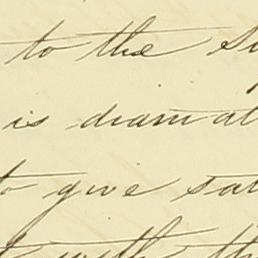 to the
is dramat
to give sat
with th